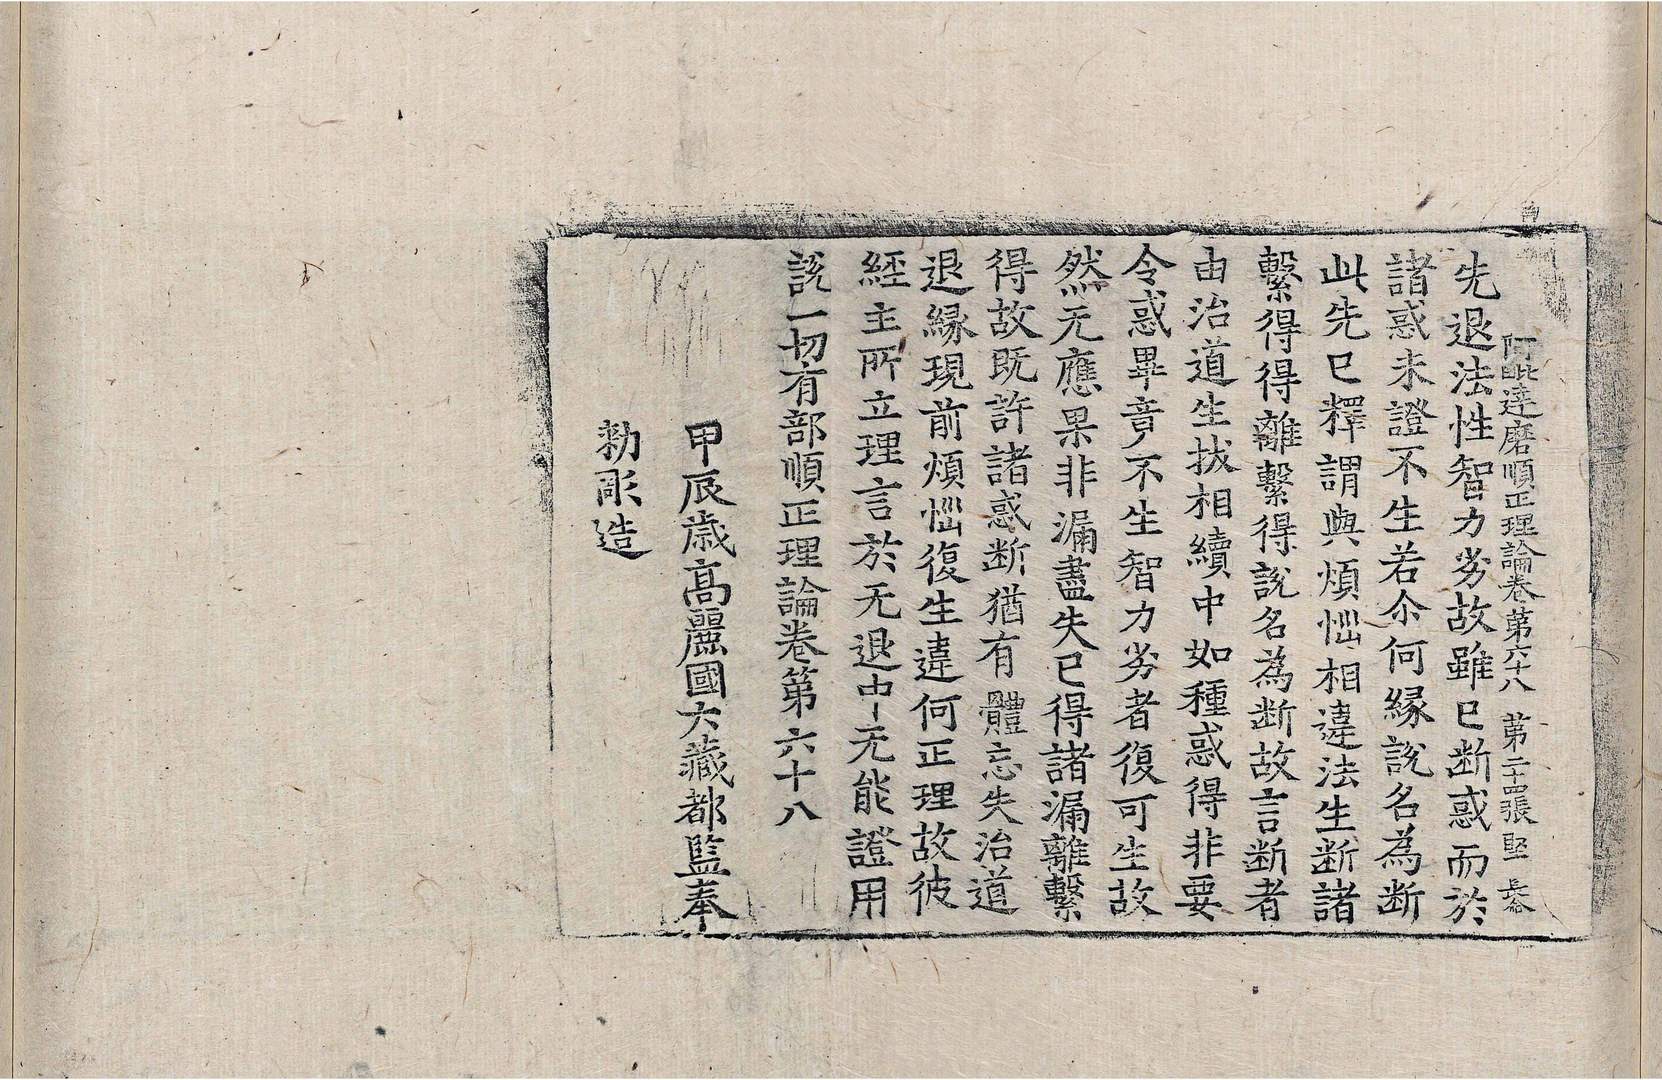 阿毗達磨順正理論卷第六十八 第二十四張 堅
先退法性智力劣故雖已断惑而於
諸惑未證不生若尒何縁說名為断
此先已釋謂與煩惱相違法生断諸
繫得得離繫得說名為断故言断者
由治道生拔相續中如種惑得非要
令惑畢竟不生智力劣者復可生故
然无應果非漏盡失已得諸漏離繫
得故既許諸惑断猶有體忘失治道
退縁現前煩惱復生違何正理故彼
經主所立理言於无退中无能證用
說一切有部順正理論卷第六十八
甲辰歲高麗國大藏都監奉
勑彫造